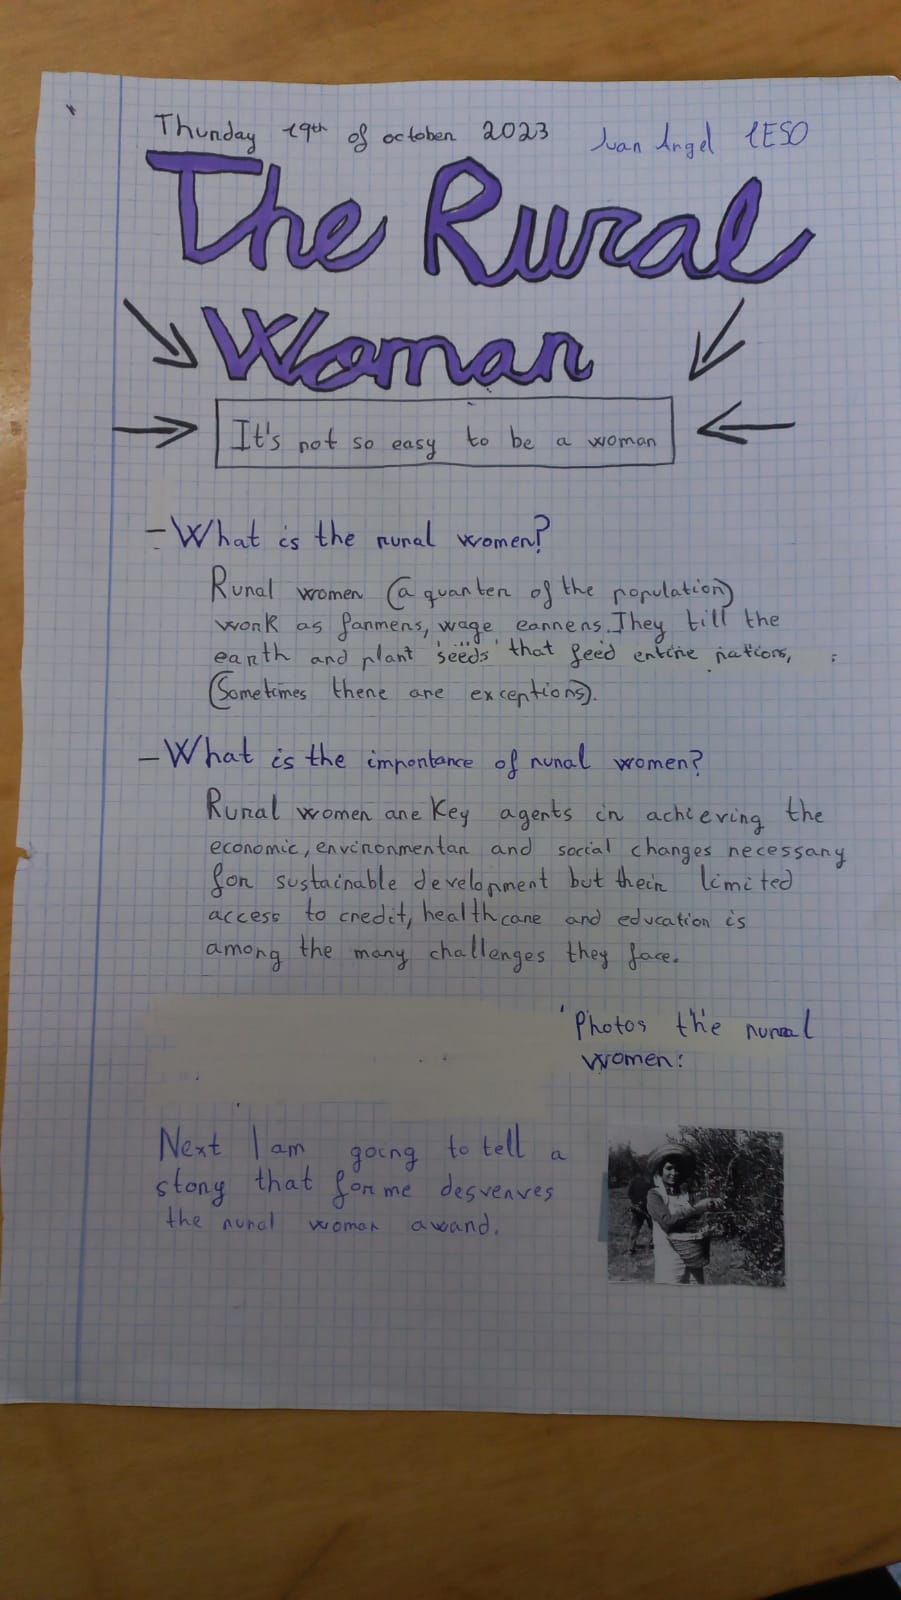 Thursday 19th of october 2023
Juan Angel 1ESO
The Rural
Woman
It's not so easy to be a woman
- What is the rural women?
Rural women (a quarter of the population)
work as farmers, wage earners. They till the
earth and plant seeds that feed entire nations,
(Sometimes there are exceptions).
- What is the importance of rural women?
Rural women are Key agents in achieving the
economic, environmentar and social changes necessary
for sustainable development but their limited
access to credit, healthcare and education is
among the many challenges they face.
Photos the rural
women:
Next I am going to tell a
story that for me desverves
the rural woman award.